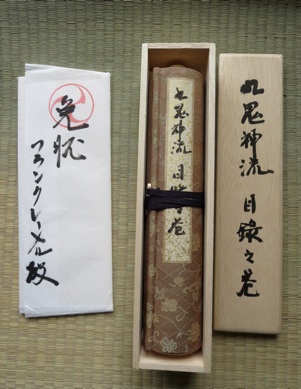 免状
フランクレーメル殿
九鬼神流 目録之巻
九鬼神流 目録之巻